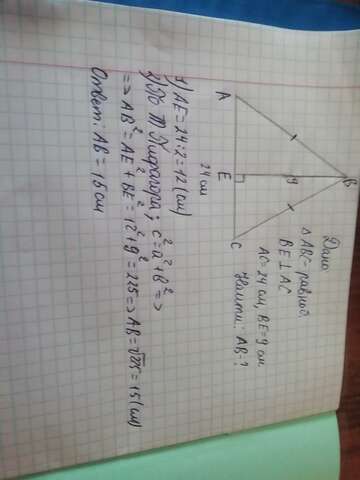 Дано
△ ABC - равноб,
BE ⊥ AC
AC = 24 см, BE = 9 см
Найти: AB = ?
B
9
A
E
C
24 см
1) AE = 24 : 2 = 12 (см)
2) По Т Пифагора; c² = a² + b² =>
=> AB² = AE² + BE² = 12² + 9² = 225 => AB = √225 = 15 (см)
Ответ: AB = 15 см